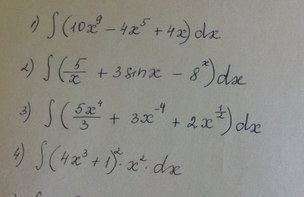 1) ∫(10x⁹ - 4x⁵ + 4x)dx
2) ∫(5/x + 3sinx - 8ˣ)dx
3) ∫(5x⁴/3 + 3x⁻⁴ + 2x^(1/2))dx
4) ∫(4x³ + 1)²·x²·dx